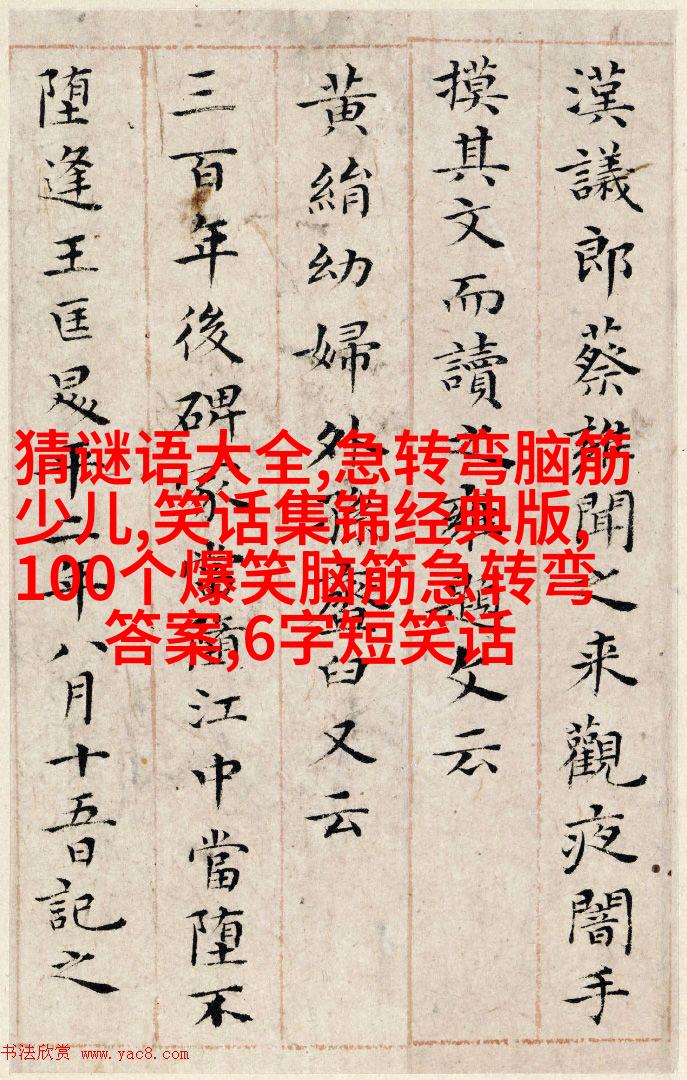 漢議郎蔡雝聞之来觀夜闇手
摸其文而讀之雝題文云
黄絹幼婦外孫臼又云
三百年後碑冢當墮江中當堕不
堕逢王匡昇平二年八月十五日記之
猜谜语大全,急转弯脑筋
少儿,笑话集锦经典版,
100个爆笑脑筋急转弯
答案,6字短笑话
书法欣赏 www.yac8.com